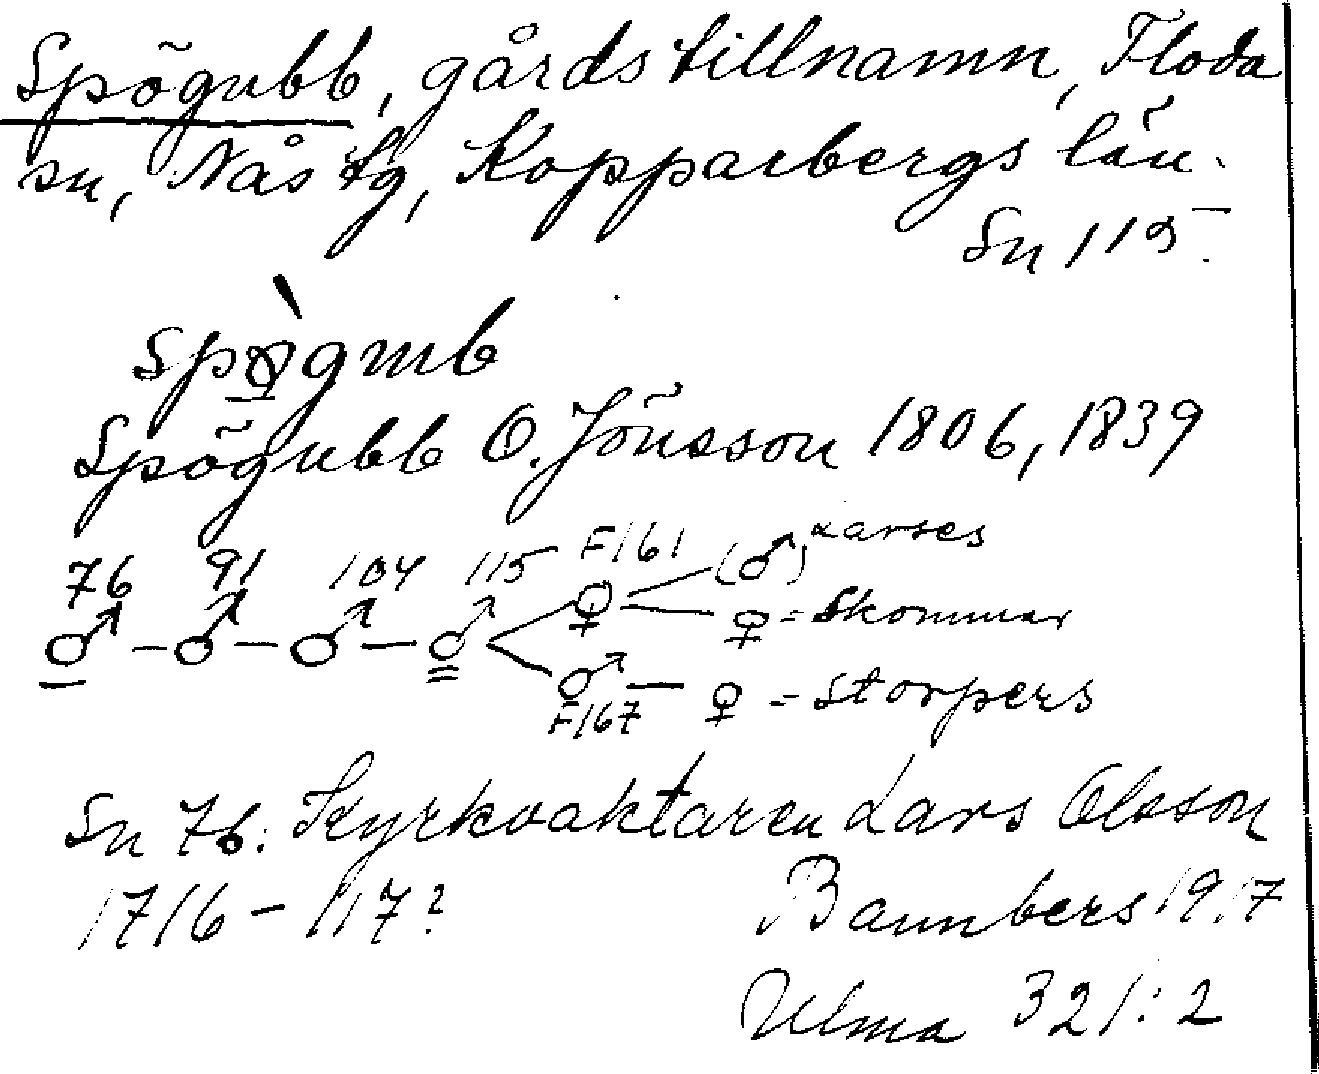 Spögubb, gårdstillnamn, Floda
sn, Nås tg, Kopparbergs län.
Sn 115.
Spögubb O. Jönsson 1806, 1839
76 91 104 115 F161 (♂) Larses
♂ – ♂ – ♂ – ♂ < ♀ ♀ = Skommar
♂ – ♀ = Storpers
F167
Sn 76: Kyrkvaktaren Lars Olsson
1716 –
Bannbers 1917
Ulma 321:2